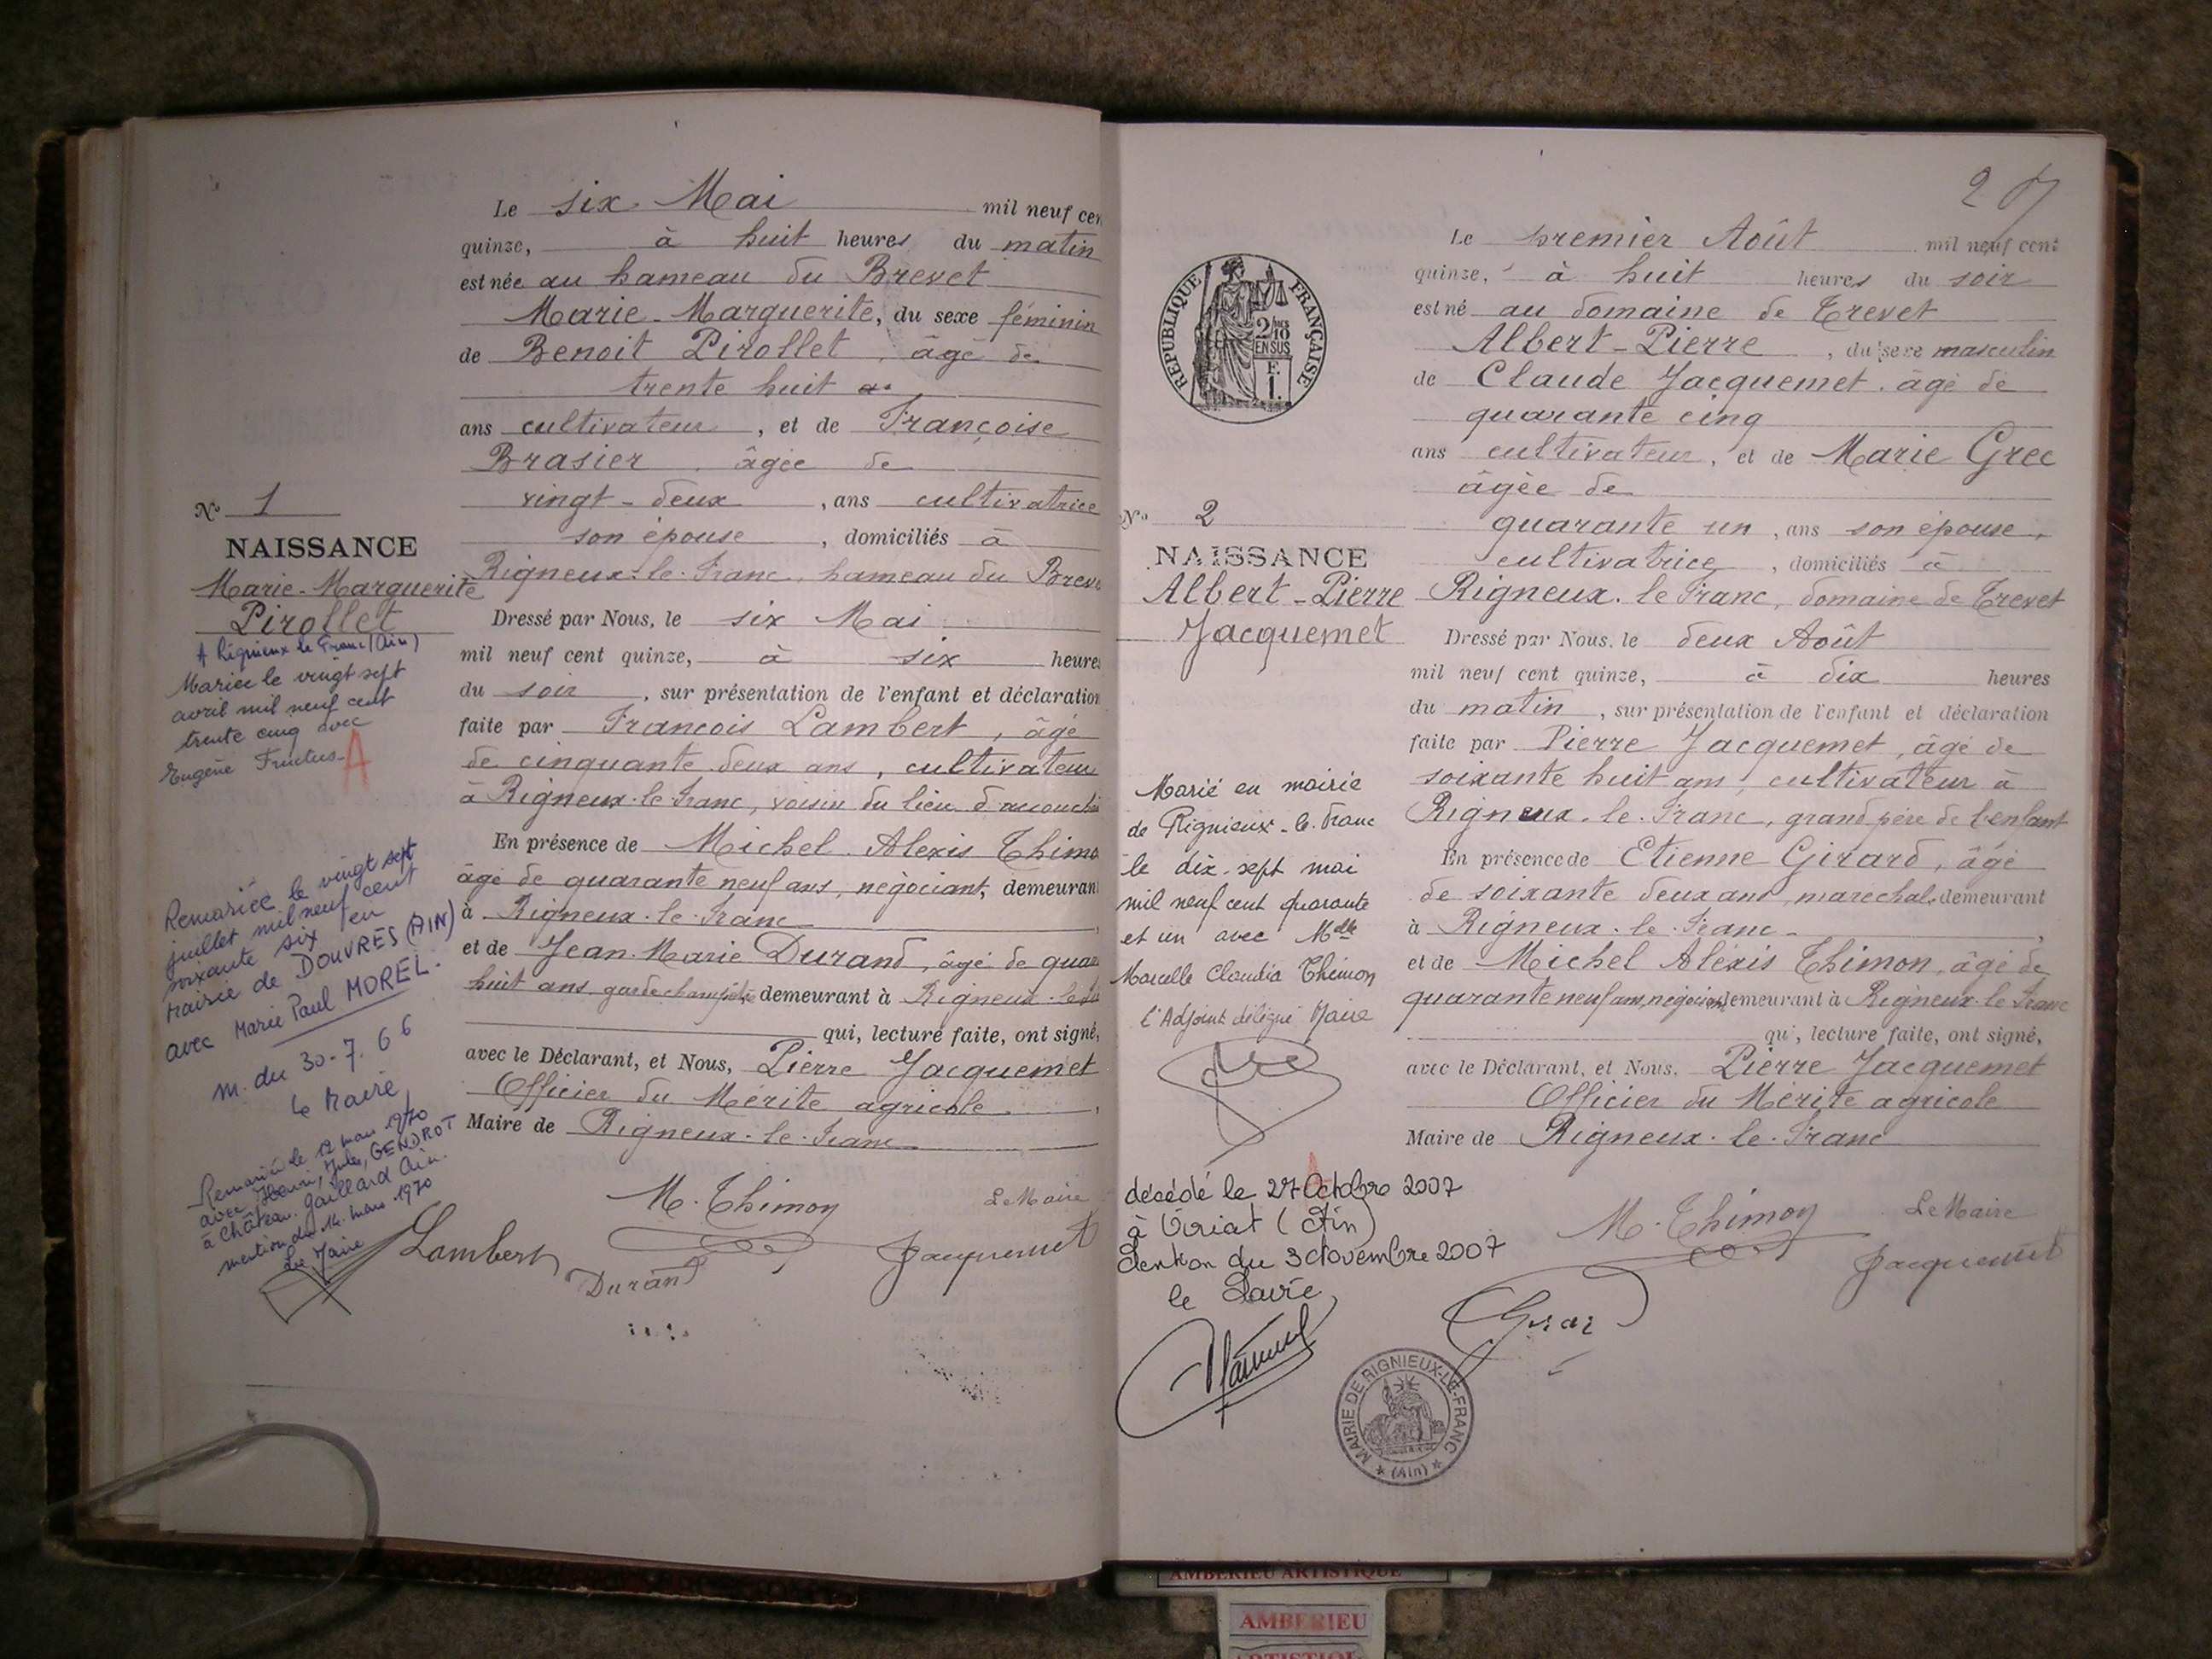 Le six Mai mil neuf cen
quinze, à huit heures du matin
est née au hameau du Brevet
Marie-Marguerite, du sexe féminin
de Benoit Pirollet, âgé de
trente huit
ans cultivateur, et de Françoise
Brasier âgée de
vingt-deux, ans cultivatrice
son épouse, domiciliés à
Rigneux-le-Franc, hameau du Breve
Dressé par Nous, le six Mai
mil neuf cent quinze, à six heures
du soir, sur présentation de l'enfant et déclaration
faite par François Lambert, âgé
de cinquante deux ans, cultivateur
à Rigneux-le-Franc, voisin du lieu d'accouche
En présence de Michel Alexis Thimo
âgé de quarante neuf ans, négociant, demeurant
à Rigneux-le-Franc
et de Jean-Marie Durand, âgé de quara
huit ans garde champêtre demeurant à Rigneux-le
qui, lecture faite, ont signé,
avec le Déclarant, et Nous, Pierre Jacquemet
Officier du Mérite agricole,
Maire de Rigneux-le-Franc
N° 1
NAISSANCE
Marie-Marguerite
Pirollet
A Rignieux le Franc (Ain)
Mariée le vingt sept
avril mil neuf cent
trente cinq avec
Eugène Fructus
A
Remariée le vingt sept
juillet mil neuf cent
soixante six en
mairie de DOUVRES (AIN)
avec Marie Paul MOREL.
m. du 30-7.66
Le Maire,
Remariée le 12 mars 1970
avec Henri, Jules, GENDROT
à Château-Gaillard Ain.
mention du 14 mars 1970
Le Maire
Lambert
M. Thimon
Durand
Le Maire
Jacquemet
27
REPUBLIQUE FRANÇAISE
2/10
EN SUS
F.
1.
Le premier Août mil neuf cent
quinze, à huit heures du soir
est né au domaine de Trevet
Albert-Pierre, du sexe masculin
de Claude Jacquemet, âgé de
quarante cinq
ans cultivateur, et de Marie Grec
âgée de
quarante un, ans son épouse,
cultivatrice, domiciliés à
Rigneux-le-Franc, domaine de Trevet
Dressé par Nous, le deux Août
mil neuf cent quinze, à dix heures
du matin, sur présentation de l'enfant et déclaration
faite par Pierre Jacquemet, âgé de
soixante huit ans, cultivateur à
Rigneux-le-Franc, grand père de l'enfant
En présence de Etienne Girard, âgé
de soixante deux ans, maréchal, demeurant
à Rigneux-le-Franc
et de Michel Aléxis Thimon, âgé de
quarante neuf ans, négociant demeurant à Rigneux-le-Franc
qui, lecture faite, ont signé,
avec le Déclarant, et Nous, Pierre Jacquemet
Officier du Mérite agricole
Maire de Rigneux-le-Franc
N° 2
NAISSANCE
Albert-Pierre
Jacquemet
Marié en mairie
de Rignieux-le-Franc
le dix-sept mai
mil neuf cent quarante
et un avec Melle
Marcelle Claudia Thimon
l'Adjoint délégué Maire
décédé le 27 Octobre 2007
à Viriat (Ain)
Mention du 3 Novembre 2007
le Maire
M. Thimon
Le Maire
Jacquemet
Girard
MAIRIE DE RIGNIEUX-LE-FRANC
* (Ain) *
AMBERIEU ARTISTIQUE
AMBERIEU
ARTISTIQUE